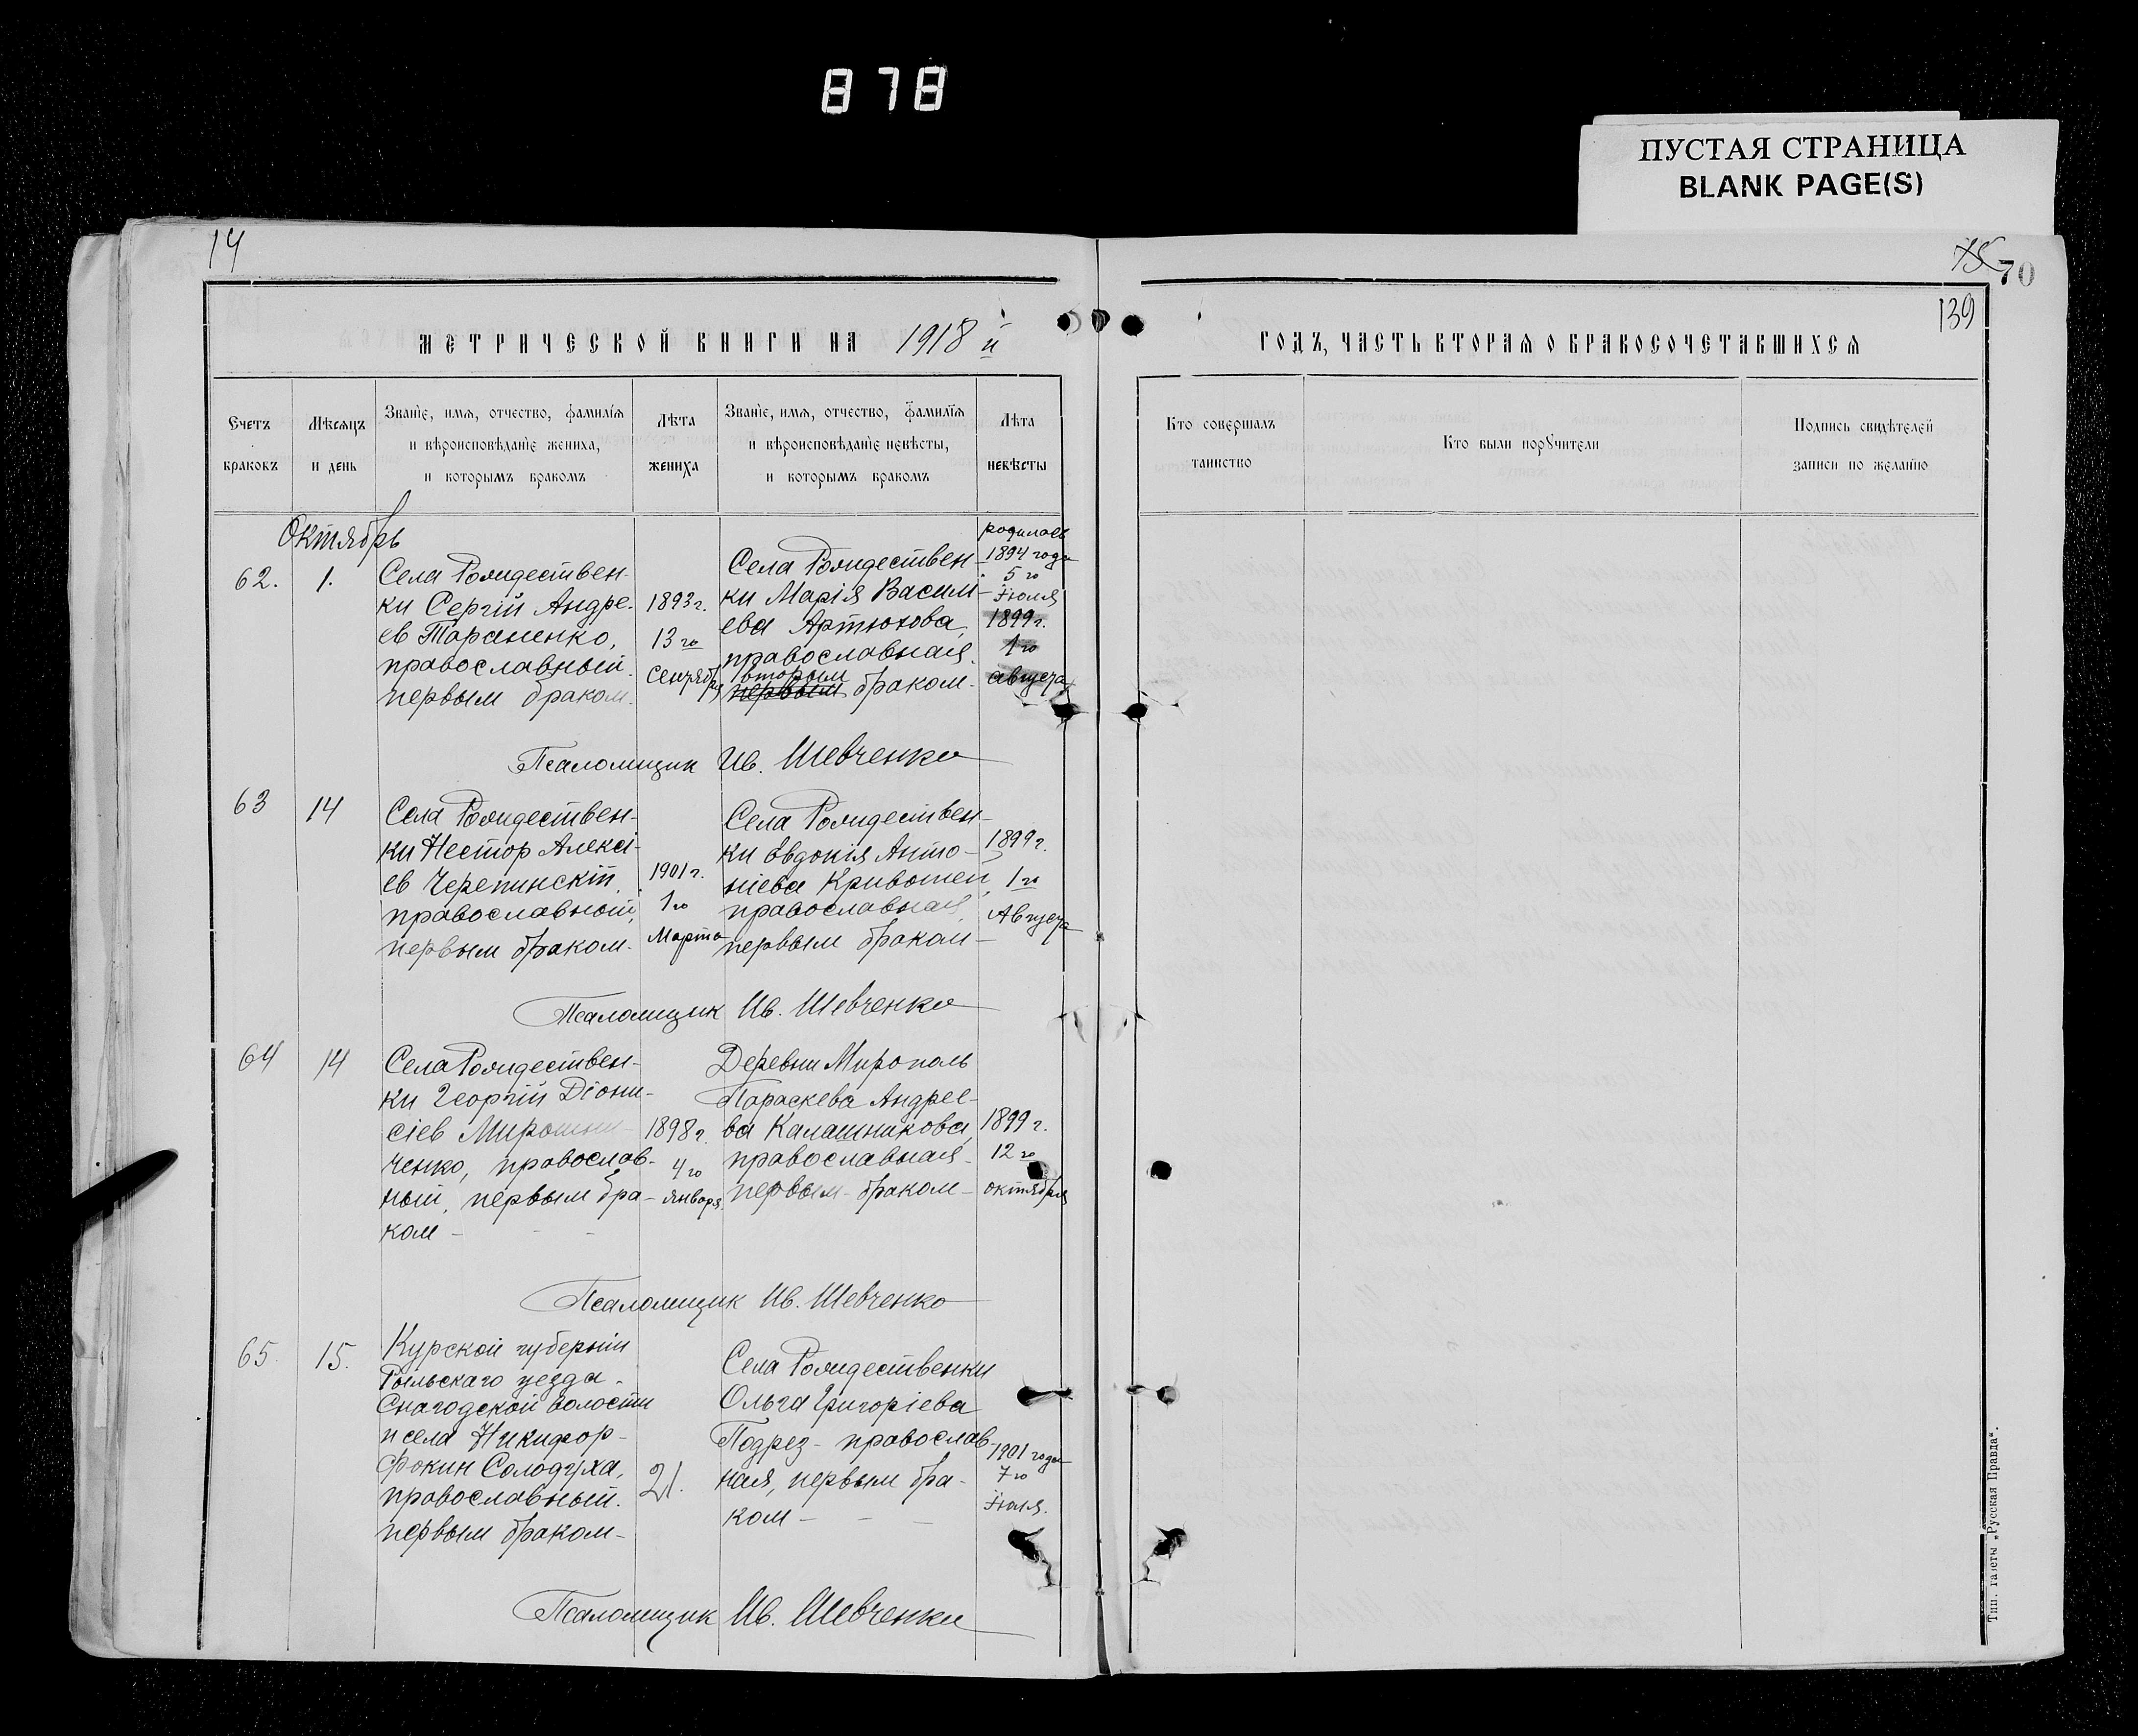 878
ПУСТАЯ СТРАНИЦА
BLANK PAGE(S)
14
75
70
139
МЕТРИЧЕСКОЙ КНИГИ НА 1918 й
ГОДЪ, ЧАСТЬ ВТОРАЯ О БРАКОСОЧЕТАВШИХСЯ
Счетъ браковъ
Мѣсяцъ и день
Званїе, имя, отчество, фамилїя
и вѣроисповѣданїе жениха,
и которымъ бракомъ
Лѣта жениха
Званїе, имя, отчество, фамилїя
и вѣроисповѣданїе невѣсты,
и которымъ бракомъ
Лѣта невѣсты
Кто совершалъ таинство
Кто были поручители
Подпись свидѣтелей
записи по желанїю
Октябрь
62.
1.
Села Рождествен-
ки Сергій Андре-
ев Тараненко,
православный.
первым браком.
1893 г.
13 го
Сентября
Села Рождествен-
ки Марія Васил-
ева Артюхова,
православная.
вторым
первым браком.
родилась
1894 года
5 го
Іюля
1899 г.
1 го
августа
Псаломщик Ив. Шевченко
63
14
Села Рождествен-
ки Нестор Алексі-
ев Черепинскій,
православный,
первым браком.
1901 г.
1 го
Марта
Села Рождествен-
ки Евдокія Анто-
ніева Кривошей,
православная,
первым браком
1899 г.
1 го
Августа
Псаломщик Ив. Шевченко
64
14
Села Рождествен-
ки Георгій Діони-
сіев Мирошни-
ченко, православ-
ный, первым бра-
ком -
1898 г.
4 го
января
Деревни Мирополь
Параскева Андрее-
ва Калашникова,
православная
первым браком
1899 г.
12 го
октября
Псаломщик Ив. Шевченко
65.
15.
Курской губерніи
Рыльскаго уезда
Снагодской волости
и села Никифор
Фокин Солодуха,
православный.
первым браком
21.
Села Рождественки
Ольга Григоріева
Подрез - православ-
ная, первым бра-
ком -
1901 года
7 го
Іюля.
Псаломщик Ив. Шевченко
Тип. газеты „Русская Правда“.